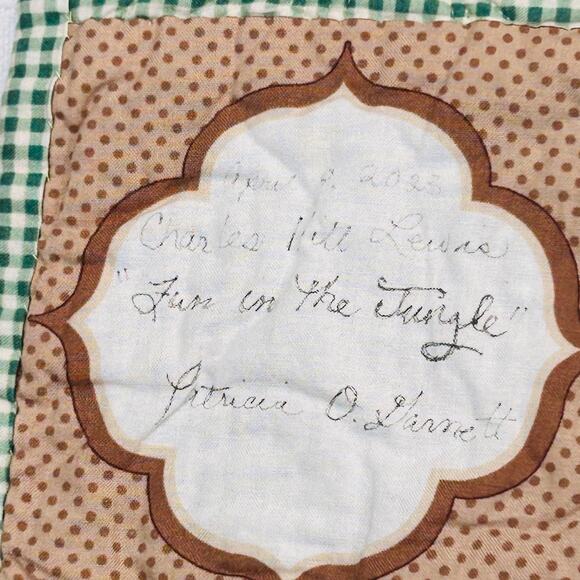 April 2023
Charles Hill Lewis
"Fun in the Jungle"
Patricia O. Garnett